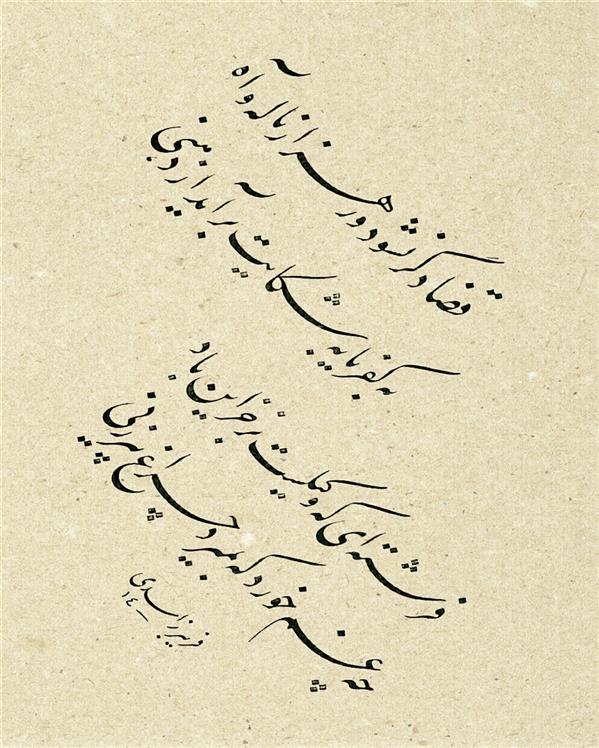 قضا دگر نشود ور هزار ناله و آه
به کفر یا به شکایت برآید از دهنی
فرشته‌ای که وکیلست بر خزاین باد
چه غم خورد که بمیرد چراغ پیرزنی
فریبرز اسدی